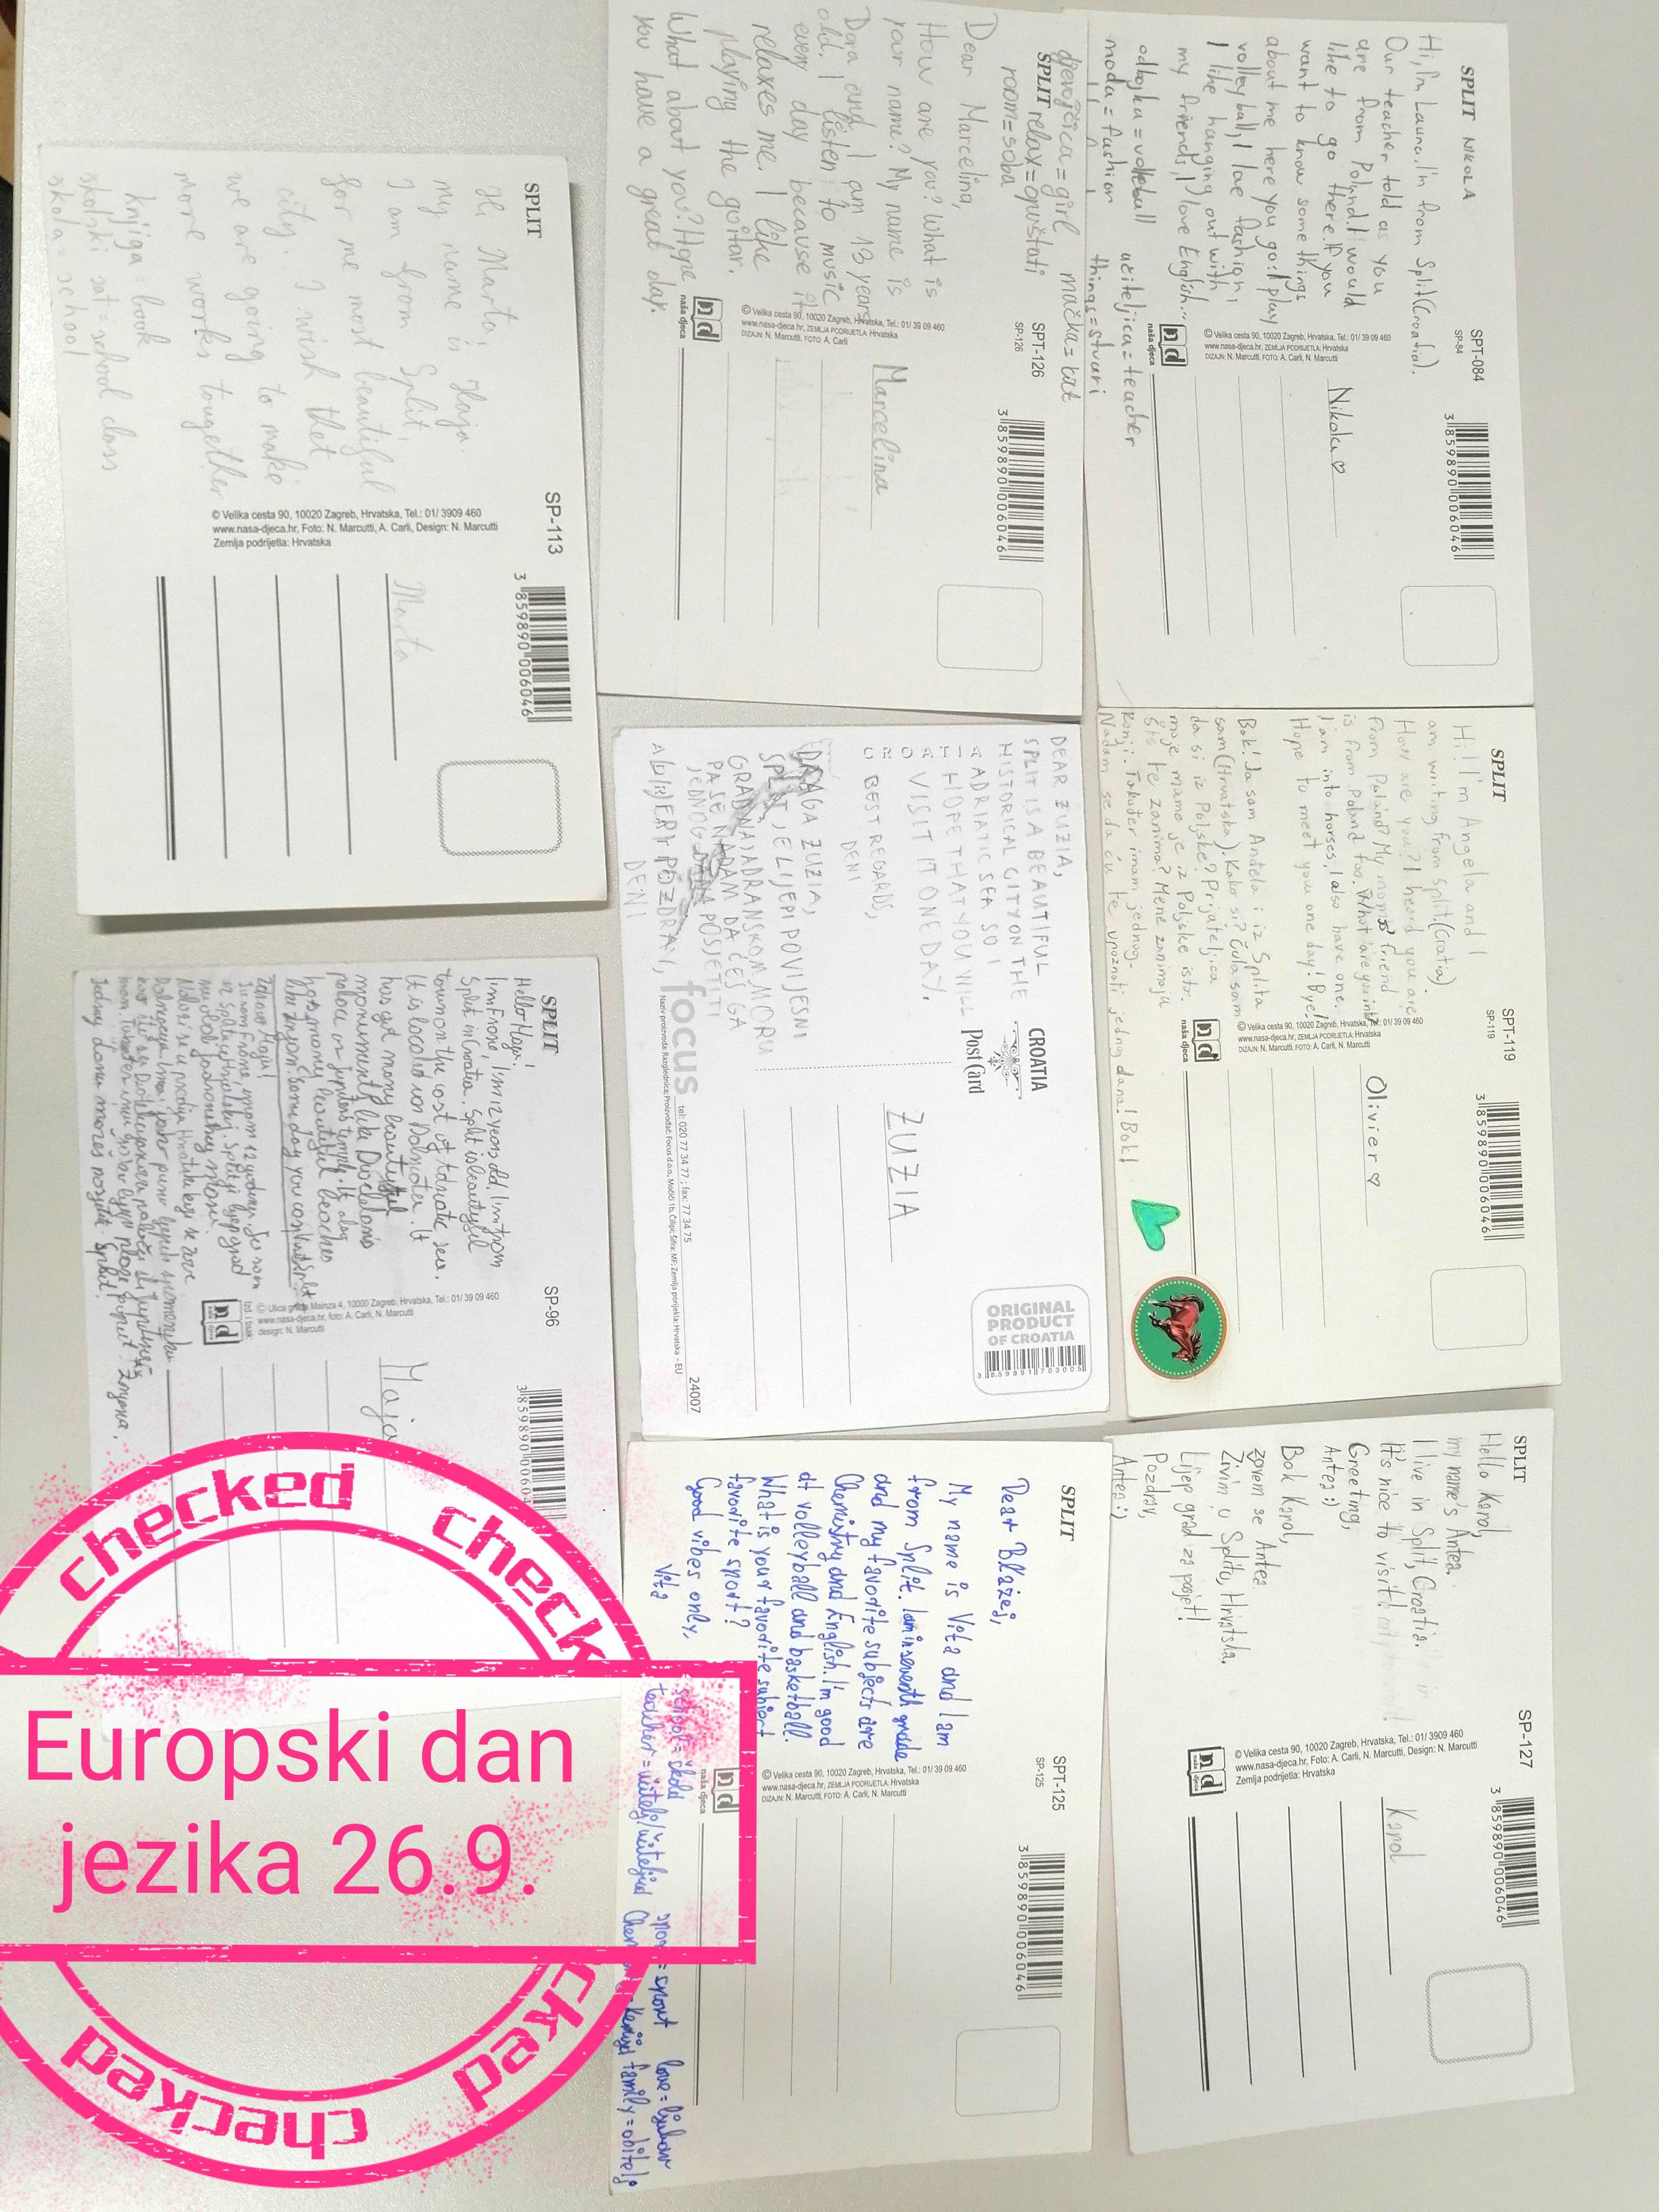 SPLIT NIKOLA
SPT-084
SP-84
3 859890 006046
Hi, I'm Laura. I'm from Split (Croatia).
Our teacher told as you
are from Poland. I would
like to go there. If you
want to know some things
about me here you go: I play
volleyball, I love fashion,
I like hanging out with
my friends, I love English...
odbojku = volleball
učiteljica = teacher
moda = fashion
things = stvari
© Velika cesta 90, 10020 Zagreb, Hrvatska, Tel.: 01/ 39 09 460
www.nasa-djeca.hr, ZEMLJA PODRIJETLA: Hrvatska
DIZAJN: N. Marcutti, FOTO: A. Carli, N. Marcutti
nd
naša djeca
Nikola ♡
SPLIT
SPT-119
SP-119
3 859890 006046
Hi! I'm Angela and I
am writing from Split. (Croatia).
How are you? I heard you are
from Poland? My mom's friend
is from Poland too. What are you into?
I am into horses, I also have one.
Hope to meet you one day! Bye!
Bok! Ja sam Anđela i iz Splita
sam (Hrvatska). Kako si? Čula sam
da si iz Poljske? Prijateljica
moje mame je iz Poljske isto.
Što te zanima? Mene zanimaju
konji. Također imam jednog.
Nadam se da ću te upoznati jednog dana! Bok!
© Velika cesta 90, 10020 Zagreb, Hrvatska, Tel.: 01/ 39 09 460
www.nasa-djeca.hr, ZEMLJA PODRIJETLA: Hrvatska
DIZAJN: N. Marcutti, FOTO: A. Carli, N. Marcutti
nd
naša djeca
Olivier ♡
SPLIT
SP-127
3 859890 006046
Hello Karol,
my name's Antea.
I live in Split, Croatia.
It's nice to visit!
Greeting,
Antea :)
Bok Karol,
zovem se Antea
Živim u Splitu, Hrvatska.
Lijep grad za posjet!
Pozdrav,
Antea :)
© Velika cesta 90, 10020 Zagreb, Hrvatska, Tel.: 01/ 3909 460
www.nasa-djeca.hr, Foto: N. Marcutti, A. Carli, Design: N. Marcutti
Zemlja podrijetla: Hrvatska
nd
naša djeca
Karol
djevojčica = girl
mačka = cat
SPLIT relax = opuštati
room = soba
SPT-126
SP-126
3 859890 006046
Dear Marcelina,
How are you? What is
your name? My name is
Dora and I am 13 years
old. I listen to music
every day because it
relaxes me. I like
playing the guitar.
What about you? Hope
you have a great day.
© Velika cesta 90, 10020 Zagreb, Hrvatska, Tel.: 01/ 39 09 460
www.nasa-djeca.hr, ZEMLJA PODRIJETLA: Hrvatska
DIZAJN: N. Marcutti, FOTO: A. Carli
nd
naša djeca
Marcelina
DEAR ZUZIA,
SPLIT IS A BEAUTIFUL
HISTORICAL CITY ON THE
ADRIATIC SEA SO I
HOPE THAT YOU WILL
VISIT IT ONE DAY.
CROATIA
BEST REGARDS,
DENI
DRAGA ZUZIA,
SPLIT JE LIJEPI POVIJESNI
GRAD NA JADRANSKOM MORU
PA SE NADAM DA ĆEŠ GA
JEDNOG DANA POSJETITI
POZDRAV,
DENI
CROATIA
Post Card
focus
tel: 020 77 34 77 ; fax: 77 34 75
24007
ZUZIA
ORIGINAL
PRODUCT
OF CROATIA
3 859891 703005
SPLIT
SPT-125
SP-125
3 859890 006046
Dear Błażej,
My name is Vita and I am
from Split. I am in seventh grade
and my favorite subjects are
Chemistry and English. I'm good
at volleyball and basketball.
What is your favorite subject
favorite sport?
Good vibes only,
Vita
school = škola
sport = sport
love = ljubav
teacher = učitelj/učiteljica
= kemija
family = obitelj
© Velika cesta 90, 10020 Zagreb, Hrvatska, Tel.: 01/ 39 09 460
www.nasa-djeca.hr, ZEMLJA PODRIJETLA: Hrvatska
DIZAJN: N. Marcutti, FOTO: A. Carli, N. Marcutti
nd
naša djeca
SPLIT
SP-113
3 859890 006046
Hi Marta,
my name is
I am from Split,
for me most beautiful
city. I wish that
we are going to make
more works tougether
knjiga = book
školski sat = school class
škola = school
© Velika cesta 90, 10020 Zagreb, Hrvatska, Tel.: 01/ 3909 460
www.nasa-djeca.hr, Foto: N. Marcutti, A. Carli, Design: N. Marcutti
Zemlja podrijetla: Hrvatska
Marta
SPLIT
SP-96
3 859890 00604
Hello Maja!
I'm Frone, I'm 12 years old. I'm from
Split in Croatia. Split is beautyful
town on the cost of Adriatic sea.
It is located in Dalmatia. It
has got many beautyful
monuments like Dioclecians
palace or Jupiters temple. It also
has many beautyful beaches
like Žnjan. Some day you can visit Split.
nd
www.nasa-djeca.hr, foto: A. Carli, N. Marcutti
design: N. Marcutti
Maja
checked check
Europski dan
jezika 26.9.
checked cked